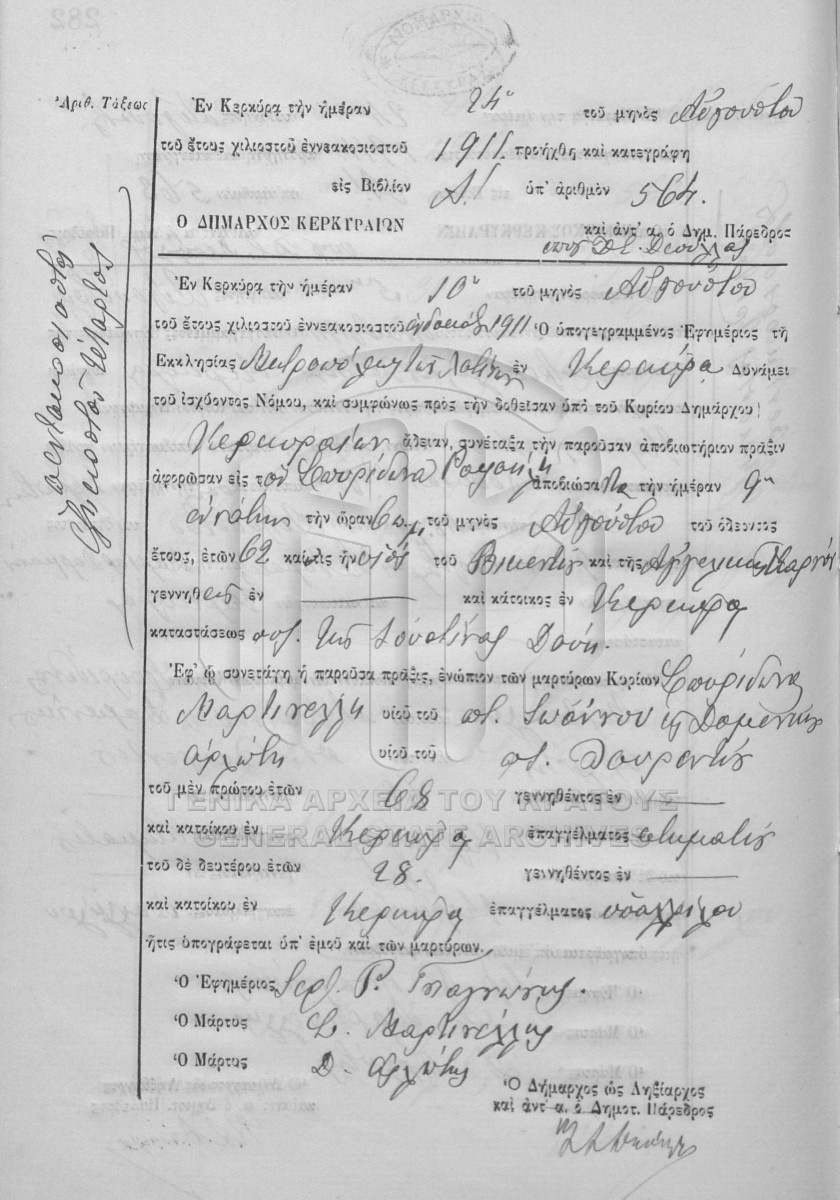 282
ΝΟΜΑΡΧΙΑ
ΚΕΡΚΥΡΑΣ
Ἀριθ. Τάξεως
πεντακοσιοστὸν
ἑξηκοστὸν τέταρτον
Ἐν Κερκύρᾳ τὴν ἡμέραν 24η τοῦ μηνὸς Αὐγούστου
τοῦ ἔτους χιλιοστοῦ ἐννεακοσιοστοῦ 1911. προήχθη καὶ κατεγράφη
εἰς Βιβλίον Α! ὑπ' ἀριθμὸν 564.
Ο ΔΗΜΑΡΧΟΣ ΚΕΡΚΥΡΑΙΩΝ καὶ ἀντ' α. ὁ Δημ. Πάρεδρος
Ἐν Κερκύρᾳ τὴν ἡμέραν 10η τοῦ μηνὸς Αὐγούστου
τοῦ ἔτους χιλιοστοῦ ἐννεακοσιοστοῦ 1911 Ὁ ὑπογεγραμμένος Ἐφημέριος τῆ
Εκκλησίας Μητροπόλεως τῶν Λατίνων ἐν Κερκύρᾳ Δυνάμει
τοῦ ἰσχύοντος Νόμου, καὶ συμφώνως πρὸς τὴν δοθεῖσαν ὑπὸ τοῦ Κυρίου Δημάρχου
Κερκυραίων ἄδειαν, συνέταξα τὴν παροῦσαν ἀποβιωτήριον πρᾶξιν
ἀφορῶσαν εἰς τὸν Σπυρίδωνα ἀποβιώσαντα τὴν ἡμέραν 9η
ἐνάτην τὴν ὥραν 6 π.μ. τοῦ μηνὸς Αὐγούστου τοῦ ὁδεύοντος
ἔτους, ἐτῶν 62 καὶ τις ἦν υἱὸς τοῦ Βικεντίου καὶ τῆς Ἀγγελικῆς
γεννηθεὶς ἐν καὶ κάτοικος ἐν Κερκύρᾳ
καταστάσεως συζ. τῆς Ἰουστίνας
Ἐφ' ᾧ συνετάγη ἡ παροῦσα πρᾶξις, ἐνώπιον τῶν μαρτύρων Κυρίων Σπυρίδωνα
Μαρτινέλλη υἱοῦ τοῦ ποτ. Ἰωάννου καὶ Δομενίκου
Ἀρλώτη υἱοῦ τοῦ ποτ. Λαυρεντίου
τοῦ μὲν πρώτου ἐτῶν 68 γεννηθέντος ἐν
καὶ κατοίκου ἐν Κερκύρᾳ ἐπαγγέλματος κτηματίου
τοῦ δὲ δευτέρου ἐτῶν 28. γεννηθέντος ἐν
καὶ κατοίκου ἐν Κερκύρᾳ ἐπαγγέλματος ὑπαλλήλου
ἥτις ὑπογράφεται ὑπ' ἐμοῦ καὶ τῶν μαρτύρων.
ΓΕΝΙΚΑ ΑΡΧΕΙΑ ΤΟΥ ΚΡΑΤΟΥΣ
GENERAL STATE ARCHIVES
Ὁ Ἐφημέριος
Ὁ Μάρτυς Σ. Μαρτινέλλης
Ὁ Μάρτυς Δ. Ἀρλώτης
Ὁ Δήμαρχος ὡς Ληξίαρχος
καὶ ἀντ' α. ὁ Δημοτ. Πάρεδρος